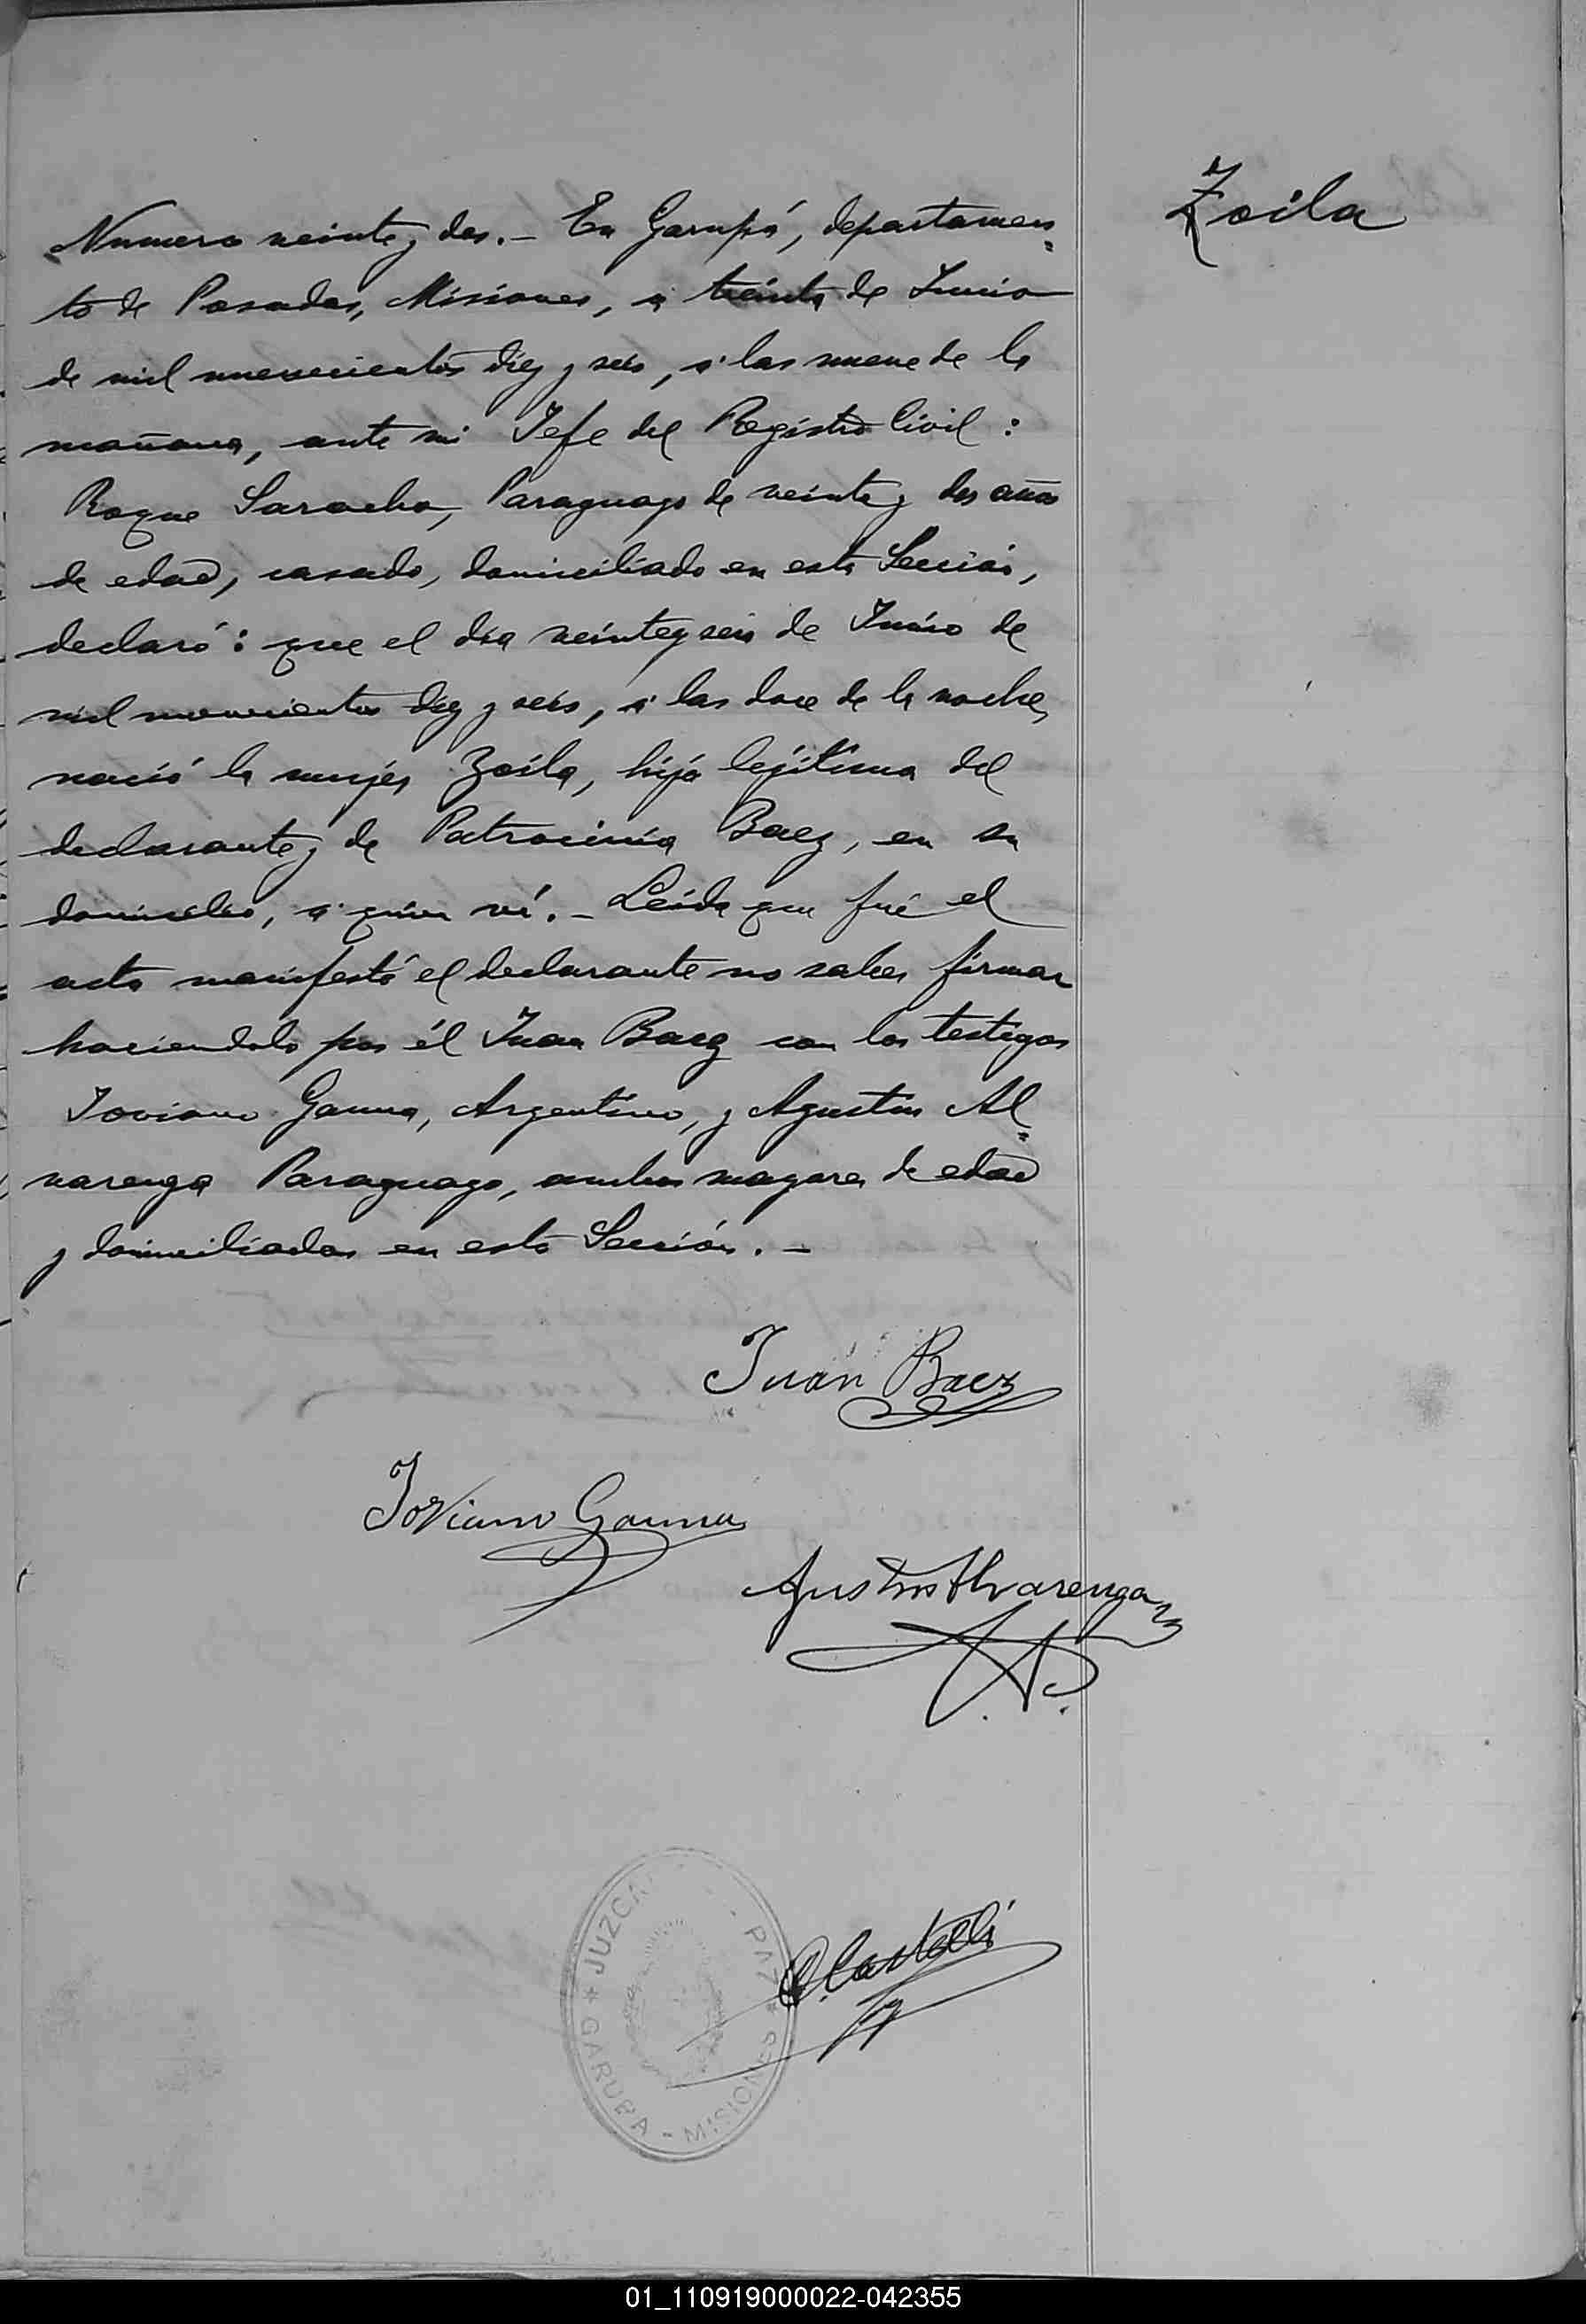 Zoila
Numero veinte y dos.- En Garupá, departamen=
to de Posadas, Misiones, a treinta de Junio
de mil novecientos diez y seis, a las nueve de la
mañana, ante mi Jefe del Registro Civil:
Roque Saracho, Paraguayo de veinte y dos años
de edad, casado, domiciliado en esta Sección,
declaró: que el dia veinte y seis de Junio de
mil novecientos diez y seis, a las doce de la noche,
nació la mujer Zoila, hija legitima del
declarante y de Patrocinia Baez, en su
domicilio, a quien vi.- Leida que fué el
acta manifestó el declarante no saber firmar
haciendolo por él Juan Baez con los testigos
Joviano Gauna, Argentino, y Agustin Al=
varenga Paraguayo, ambos mayores de edad
y domiciliados en esta Sección.-
Juan Baez
Joviano Gauna
Agustin Alvarenga
JUZGA PAZ
Castelli
* GARUPA - MISIONES *
01_110919000022-042355